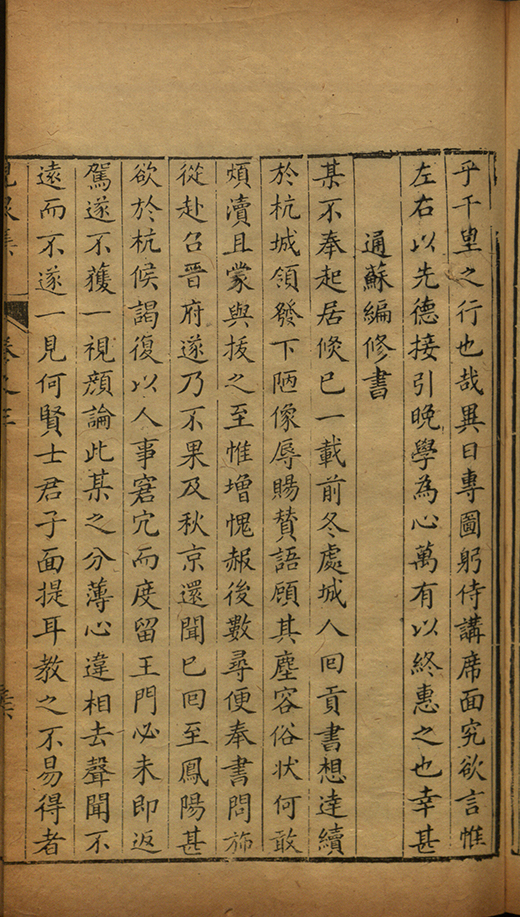 乎千里之行也哉異日專圖躬侍講席面究欲言惟
左右以先德接引晚學為心萬有以終惠之也幸甚
通蘇編修書
某不奉起居候已一載前冬處城人回貢書想達續
於杭城領發下陋像辱賜賛語顧其塵容俗状何敢
煩瀆且蒙與拔之至惟增愧赧後數尋便奉書問斾
從赴召晉府遂乃不果及秋京還聞已回至鳳陽甚
欲於杭候謁復以人事窘宂而度留王門必未即返
駕遂不獲一視顔論此某之分薄心違相去聲聞不
遠而不遂一見何賢士君子面提耳教之不易得者
集
卷之三